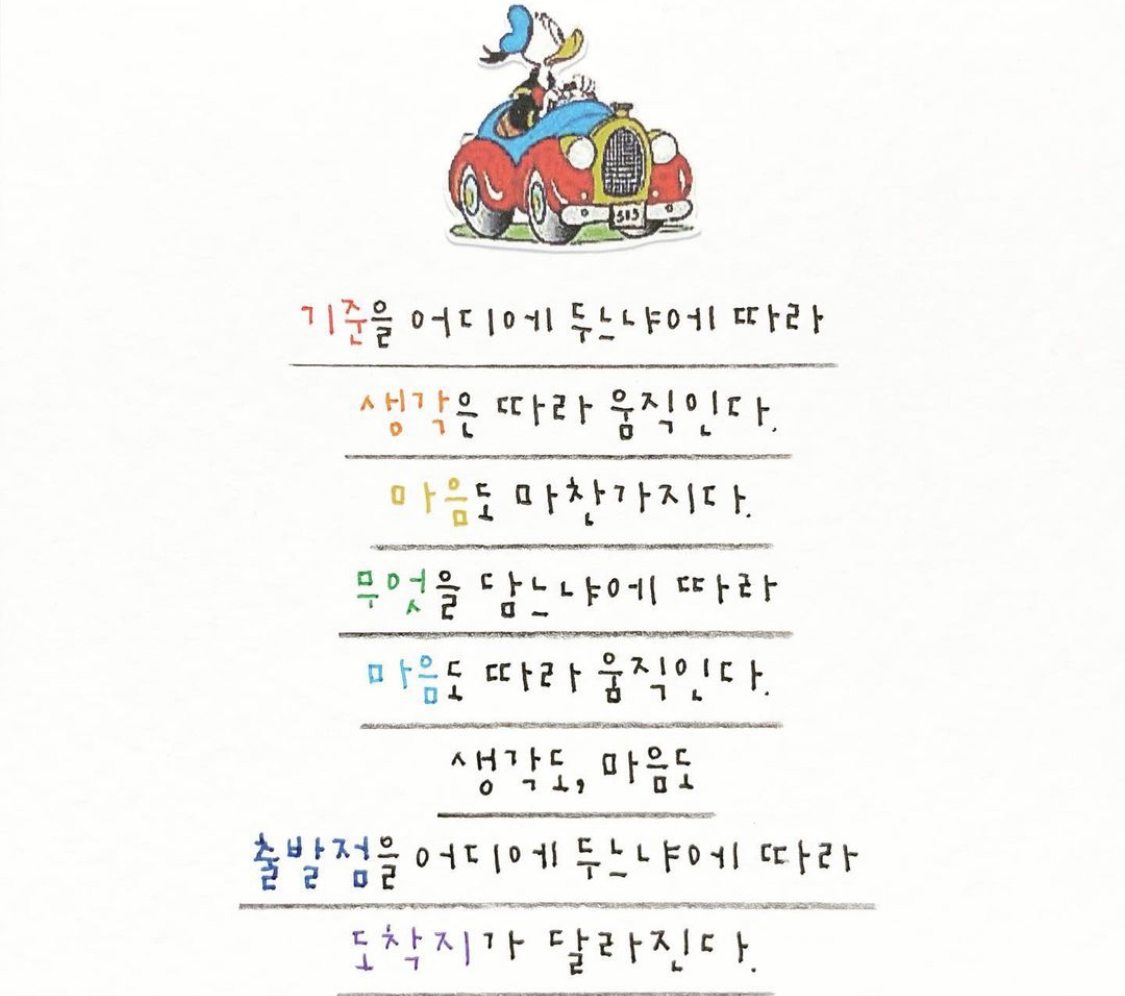 313
기준을 어디에 두느냐에 따라
생각은 따라 움직인다.
마음도 마찬가지다.
무엇을 담느냐에 따라
마음도 따라 움직인다.
생각도, 마음도
출발점을 어디에 두느냐에 따라
도착지가 달라진다.